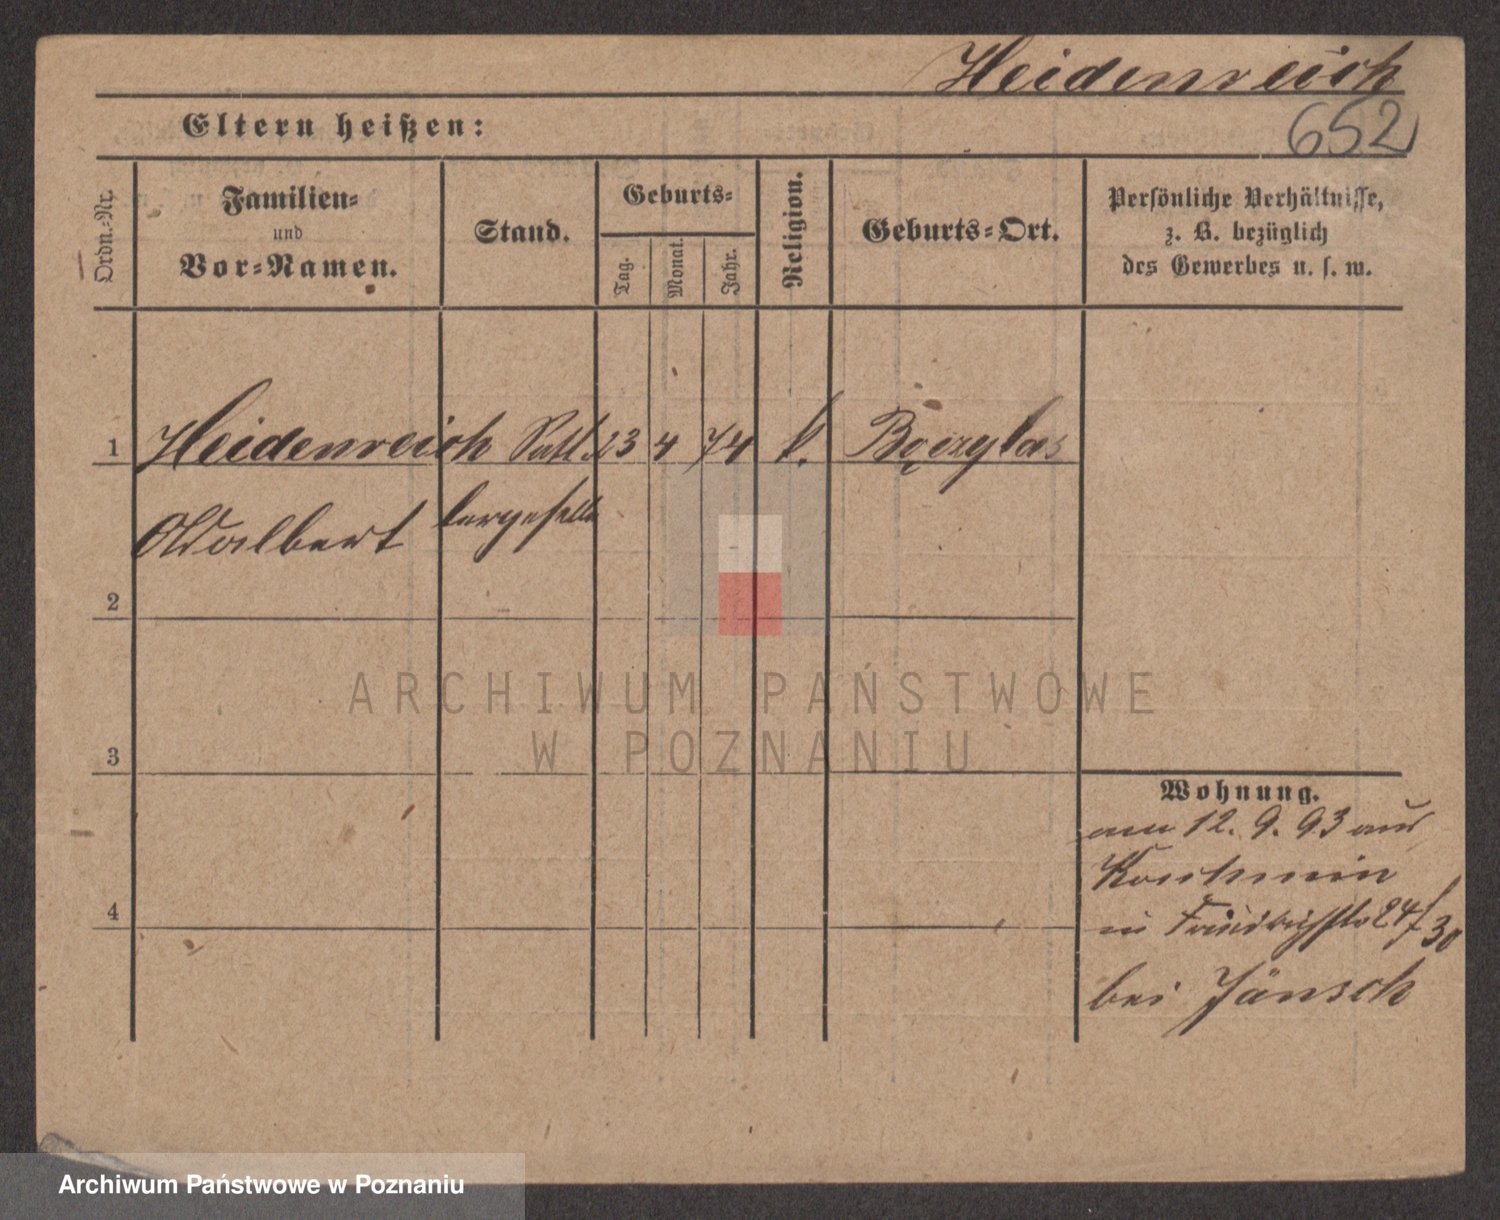 Heidenreich
652
Eltern heißen:
Ordn.-Nr.
Familien-
und
Vor-Namen.
Stand.
Geburts-
Tag.
Monat.
Jahr.
Religion.
Geburts-Ort.
Persönliche Verhältnisse,
z. B. bezüglich
des Gewerbes u. s. w.
1 Heidenreich Satt 23 4 74 k.
Adalbert lergeselle
2
3
4
Wohnung.
am 12. 9. 93 aus
Koschmin
in Friedrichstr 24/30
bei Jänsch
ARCHIWUM PAŃSTWOWE
W POZNANIU
Archiwum Państwowe w Poznaniu